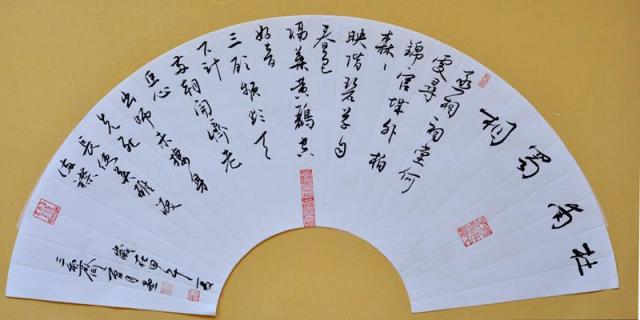 杜甫蜀相
丞相祠堂何
處尋
錦官城外柏
森々
映階碧草自
春色
隔葉黃鸝空
好音
三顧頻煩天
下計
兩朝開濟老
臣心
出師未捷身
先死
長使英雄淚
滿襟